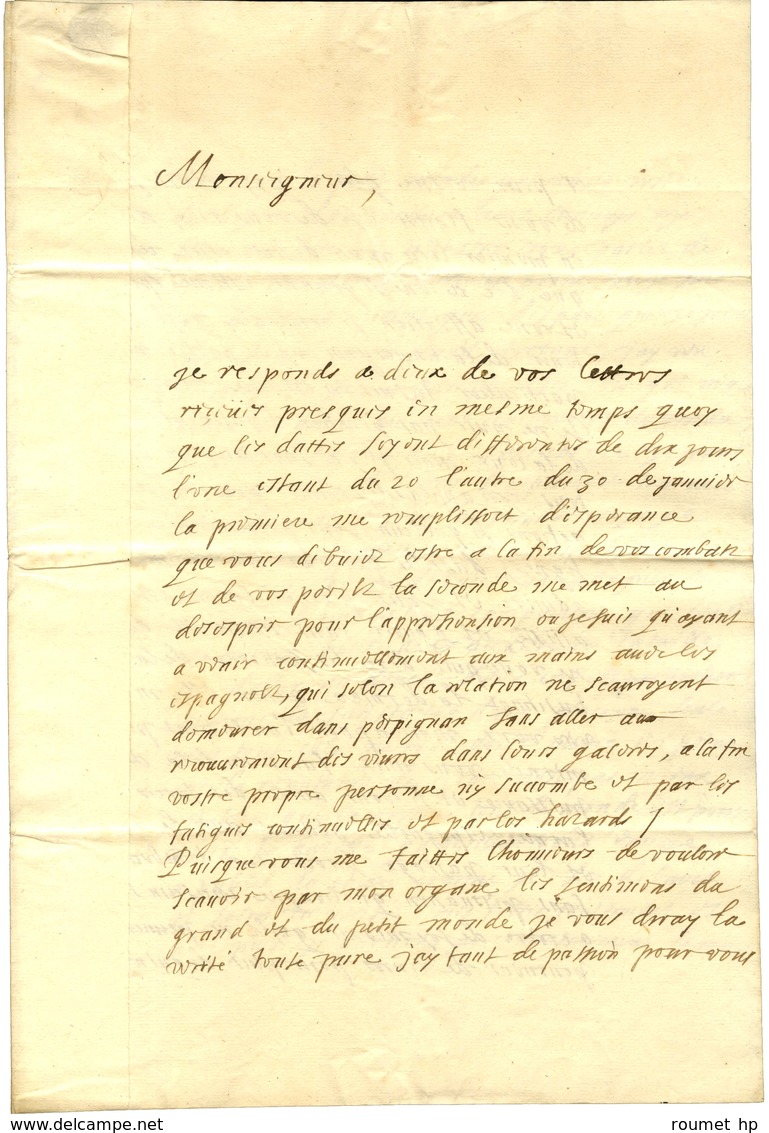 Monseigneur,
je responds a deux de vos lettres
reçeües presques en mesme temps quoy
que les dattes soyent differentes de dix jours
l'une estant du 20 l'autre du 30 de januier
la premiere me remplissoit d'esperance
que vous debuiez estre a la fin de vos combatz
et de vos perilz la seconde me met au
desespoir pour l'apprehension ou je suis qu'ayant
a venir continuellement aux mains avec les
espagnolz, qui selon la relation ne scauroyent
demeurer dans perpignan sans aller au
recouurement des viures dans leurs galeres, a la fin
vostre propre personne n'y succombe et par les
fatigues continuelles et par les hazards /
Puisque vous me faittes l'honneurs de vouloir
scauoir par mon organe les sentimens du
grand et du petit monde je vous diray la
verité toute pure j'ay tant de passion pour vous
www.delcampe.net
roumet hp